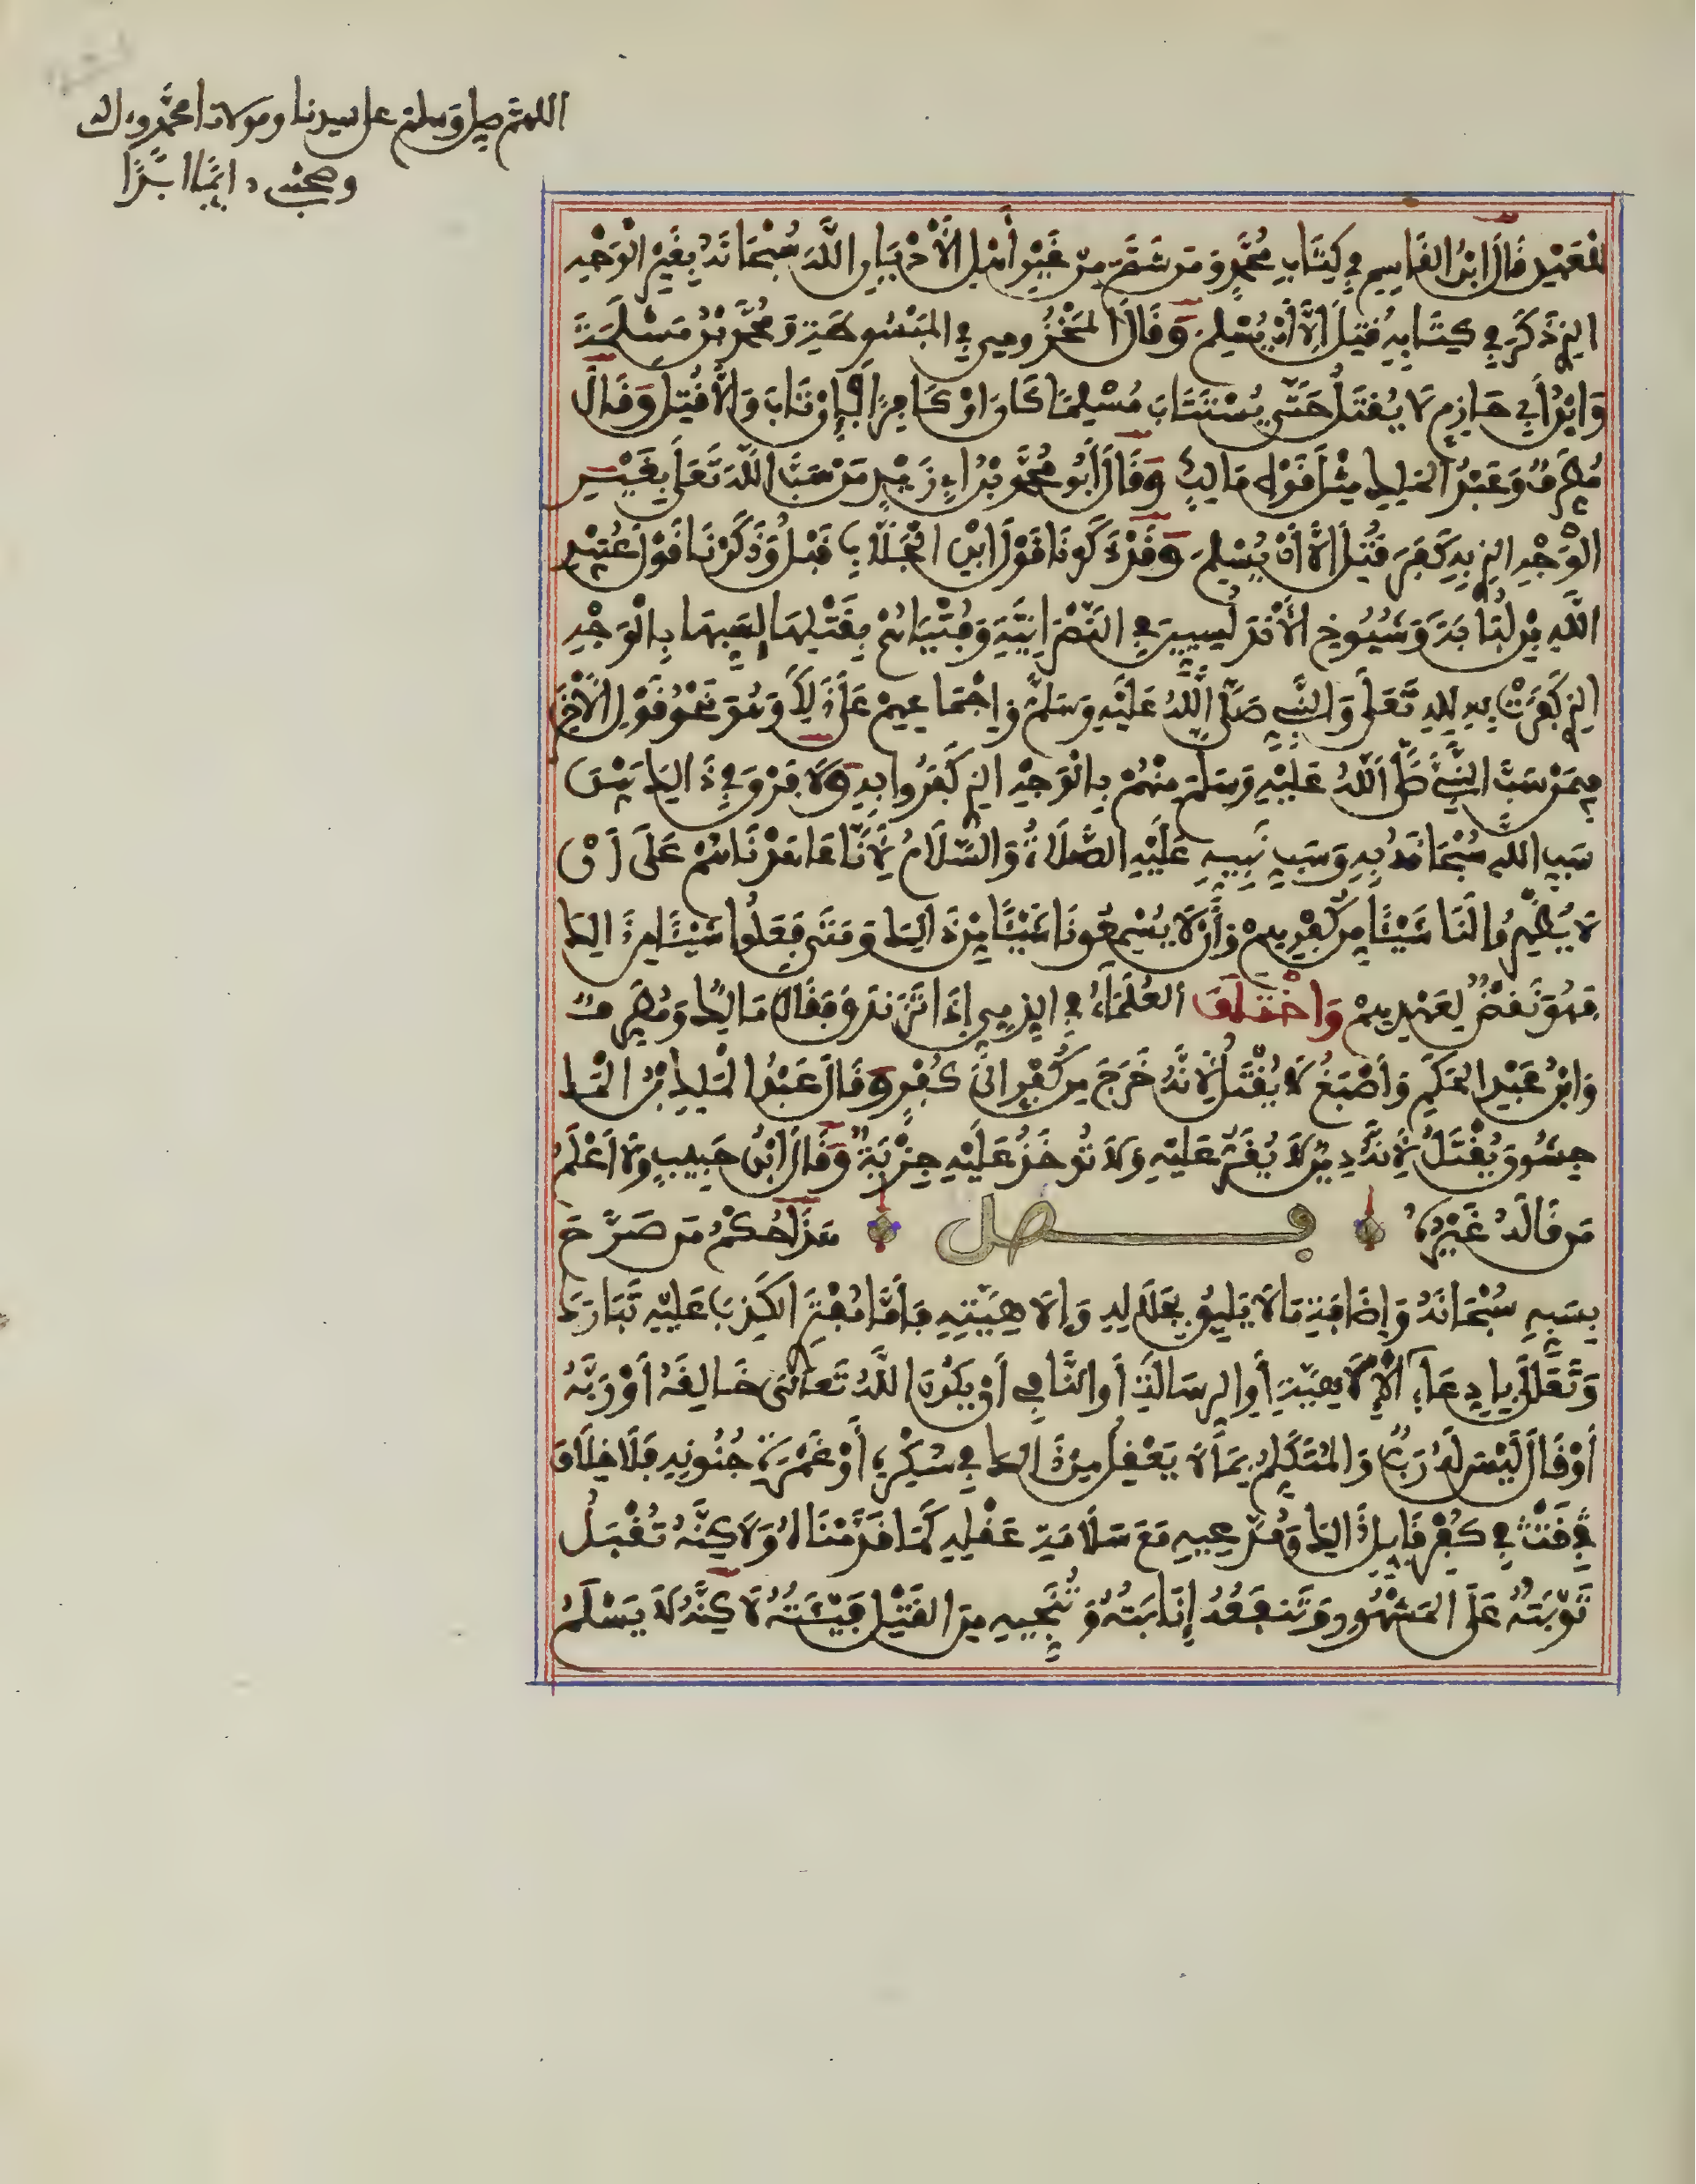 اللهم صل وسلم على سيدنا ومولانا محمد وءاله
وصحبه دائما ابدا
للعهد قال ابن القاسم في كتاب محمد ومن شتم من غير أهل الأديان الله سبحانه بغير الوجه
الذي ذكر في كتابه قتل إلا أن يسلم وقال المخزومي في المبسوطة ومحمد بن مسلمة
وابن أبي حازم لا يقتل حتى يستتاب مسلما كان أو كافرا فإن تاب وإلا قتل وقال
مطرف وعبد الملك مثل قول مالك وقال أبو محمد بن أبي زيد من سب الله تعلى بغير
الوجه الذي به كفر قتل إلا أن يسلم وقد ذكرنا قول ابن الجلاب قبل وذكرنا قول عبيد
الله بن لبابة وشيوخ الأندلسيين في النصرانية وفتياهم بقتلها لسبها بالوجه
الذي كفرت به لله تعلى والنبي صلى الله عليه وسلم وإجماعهم على ذلك وهو نحو قول الآخر
فيمن سب النبي صلى الله عليه وسلم منهم بالوجه الذي كفروا به ولا فرق في ذلك بين
سب الله سبحانه به وسب نبيه عليه الصلاة والسلام لأنا عاهدناهم على أن
لا يظهروا لنا شيئا من كفرهم وأن لا يسمعونا شيئا من ذلك ومتى فعلوا شيئا من ذلك
فهو نقض لعهدهم واختلف العلماء في الذمي إذا تزندق فقال مالك ومطرف
وابن عبد الحكم وأصبغ لا يقتل لأنه خرج من كفر الى كفر وقال عبد الملك بن الما
جشون يقتل لأنه دين لا يقر عليه ولا توخذ عليه جزية وقال ابن حبيب ولا أعلم
من قاله غيره فصل هذا حكم من صرح
بسبه سبحانه وإضافة ما لا يليق بجلاله وإلاهيته فأما مفتر الكذب عليه تبارك
وتعلى بادعاء الإلاهية أو الرسالة أو النافي أن يكون الله تعالى خالقه أو ربه
أو قال ليس له رب والمتكلم بما لا يعقل من ذلك في سكره أو غمرة جنونه فلا خلاف
في كفر قايل ذلك ومدعيه مع سلامة عقله كما قدمناه ولاكنه تقبل
توبته على المشهور وتنفعه إنابته وتنجيه من القتل فيئته لاكنه لا يسلم